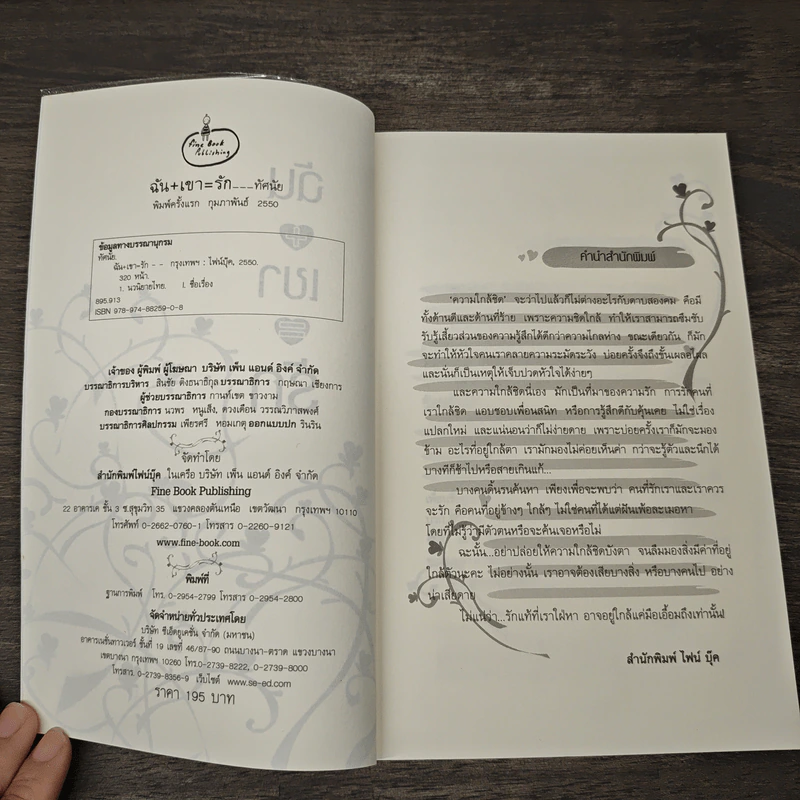 Fine Book
Publishing
ฉัน+เขา=รัก___ทัศนัย
พิมพ์ครั้งแรก กุมภาพันธ์ 2550
ข้อมูลทางบรรณานุกรม
ทัศนัย.
ฉัน+เขา=รัก - - กรุงเทพฯ : ไฟน์บุ๊ค, 2550.
320 หน้า.
1. นวนิยายไทย. I. ชื่อเรื่อง
895.913
ISBN 978-974-88259-0-8
เจ้าของ ผู้พิมพ์ ผู้โฆษณา บริษัท เพ็น แอนด์ อิงค์ จำกัด
บรรณาธิการบริหาร สินชัย ติงธนาธิกุล บรรณาธิการ กฤษณา เชียงการ
ผู้ช่วยบรรณาธิการ กานท์เขต ชาวงาม
กองบรรณาธิการ นวพร หนูเส็ง, ดวงเดือน วรรณวิภาสพงศ์
บรรณาธิการศิลปกรรม เพียรศรี หอมเกตุ ออกแบบปก รินริน
จัดทำโดย
สำนักพิมพ์ไฟน์บุ๊ค ในเครือ บริษัท เพ็น แอนด์ อิงค์ จำกัด
Fine Book Publishing
22 อาคารเค ชั้น 3 ซ.สุขุมวิท 35 แขวงคลองตันเหนือ เขตวัฒนา กรุงเทพฯ 10110
โทรศัพท์ 0-2662-0760-1 โทรสาร 0-2260-9121
www.fine-book.com
พิมพ์ที่
ฐานการพิมพ์ โทร. 0-2954-2799 โทรสาร 0-2954-2800
จัดจำหน่ายทั่วประเทศโดย
บริษัท ซีเอ็ดยูเคชั่น จำกัด (มหาชน)
อาคารเนชั่นทาวเวอร์ ชั้นที่ 19 เลขที่ 46/87-90 ถนนบางนา-ตราด แขวงบางนา
เขตบางนา กรุงเทพฯ 10260 โทร.0-2739-8222, 0-2739-8000
โทรสาร 0-2739-8356-9 เว็บไซต์ www.se-ed.com
ราคา 195 บาท
คำนำสำนักพิมพ์
'ความใกล้ชิด' จะว่าไปแล้วก็ไม่ต่างอะไรกับดาบสองคม คือมี
ทั้งด้านดีและด้านที่ร้าย เพราะความชิดใกล้ ทำให้เราสามารถซึมซับ
รับรู้เสี้ยวส่วนของความรู้สึกได้ดีกว่าความไกลห่าง ขณะเดียวกัน ก็มัก
จะทำให้หัวใจคนเราคลายความระมัดระวัง บ่อยครั้งจึงถึงขั้นเผลอไผล
และนั่นก็เป็นเหตุให้เจ็บปวดหัวใจได้ง่ายๆ
และความใกล้ชิดนี่เอง มักเป็นที่มาของความรัก การรักคนที่
เราใกล้ชิด แอบชอบเพื่อนสนิท หรือการรู้สึกดีกับคุ้นเคย ไม่ใช่เรื่อง
แปลกใหม่ และแน่นอนว่าก็ไม่ง่ายดาย เพราะบ่อยครั้งเราก็มักจะมอง
ข้าม อะไรที่อยู่ใกล้ตา เรามักมองไม่ค่อยเห็นค่า กว่าจะรู้ตัวและนึกได้
บางทีก็ช้าไปหรือสายเกินแก้...
บางคนดิ้นรนค้นหา เพียงเพื่อจะพบว่า คนที่รักเราและเราควร
จะรัก คือคนที่อยู่ข้างๆ ใกล้ๆ ไม่ใช่คนที่ได้แต่ฝันเพ้อละเมอหา
โดยที่ไม่รู้ว่ามีตัวตนหรือจะค้นเจอหรือไม่
ฉะนั้น...อย่าปล่อยให้ความใกล้ชิดบังตา จนลืมมองสิ่งมีค่าที่อยู่
ใกล้ตัวนะคะ ไม่อย่างนั้น เราอาจต้องเสียบางสิ่ง หรือบางคนไป อย่าง
น่าเสียดาย
ไม่แน่ว่า...รักแท้ที่เราใฝ่หา อาจอยู่ใกล้แค่มือเอื้อมถึงเท่านั้น!
สำนักพิมพ์ ไฟน์ บุ๊ค